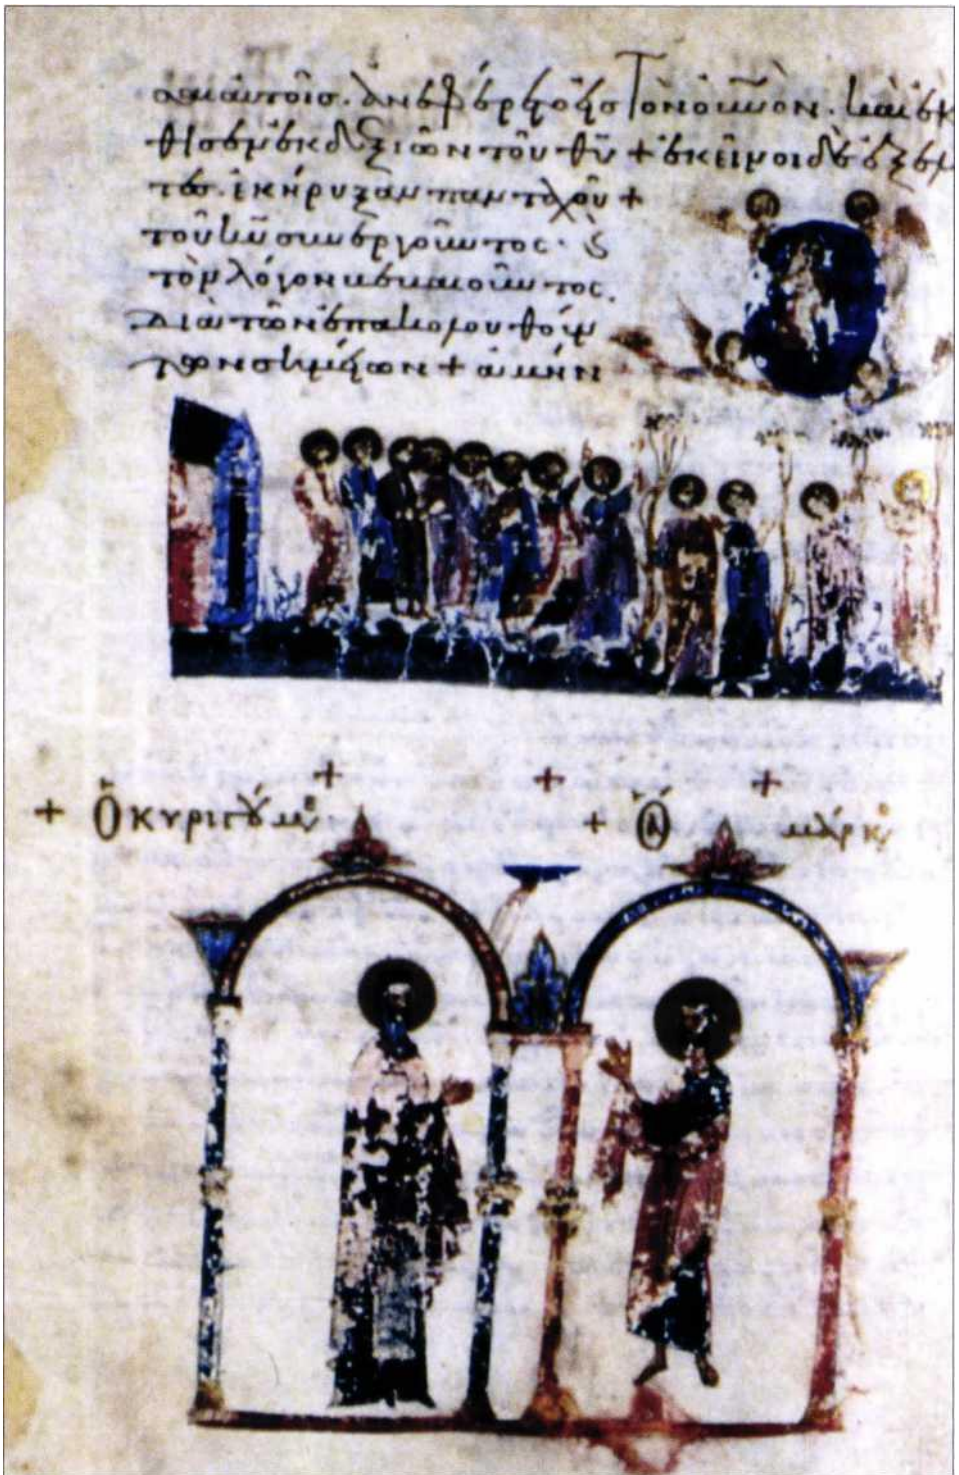 σαι αὐτοῖς. ἀνελήφθη εἰς τὸν οὐνὸν. καὶ ἐκ
θισεν ἐκ δεξιῶν τοῦ θυ + ἐκεῖνοι δὲ ἐξελ
τες. ἐκήρυξαν πανταχοῦ +
τοῦ κυ συνεργοῦντος. κ
τὸν λόγον βεβαιοῦντος.
διὰ τῶν ἐπακολουθούν
των σημείων + ἀμήν
+ + +
+ Ὁ + Ὁ μάρκο